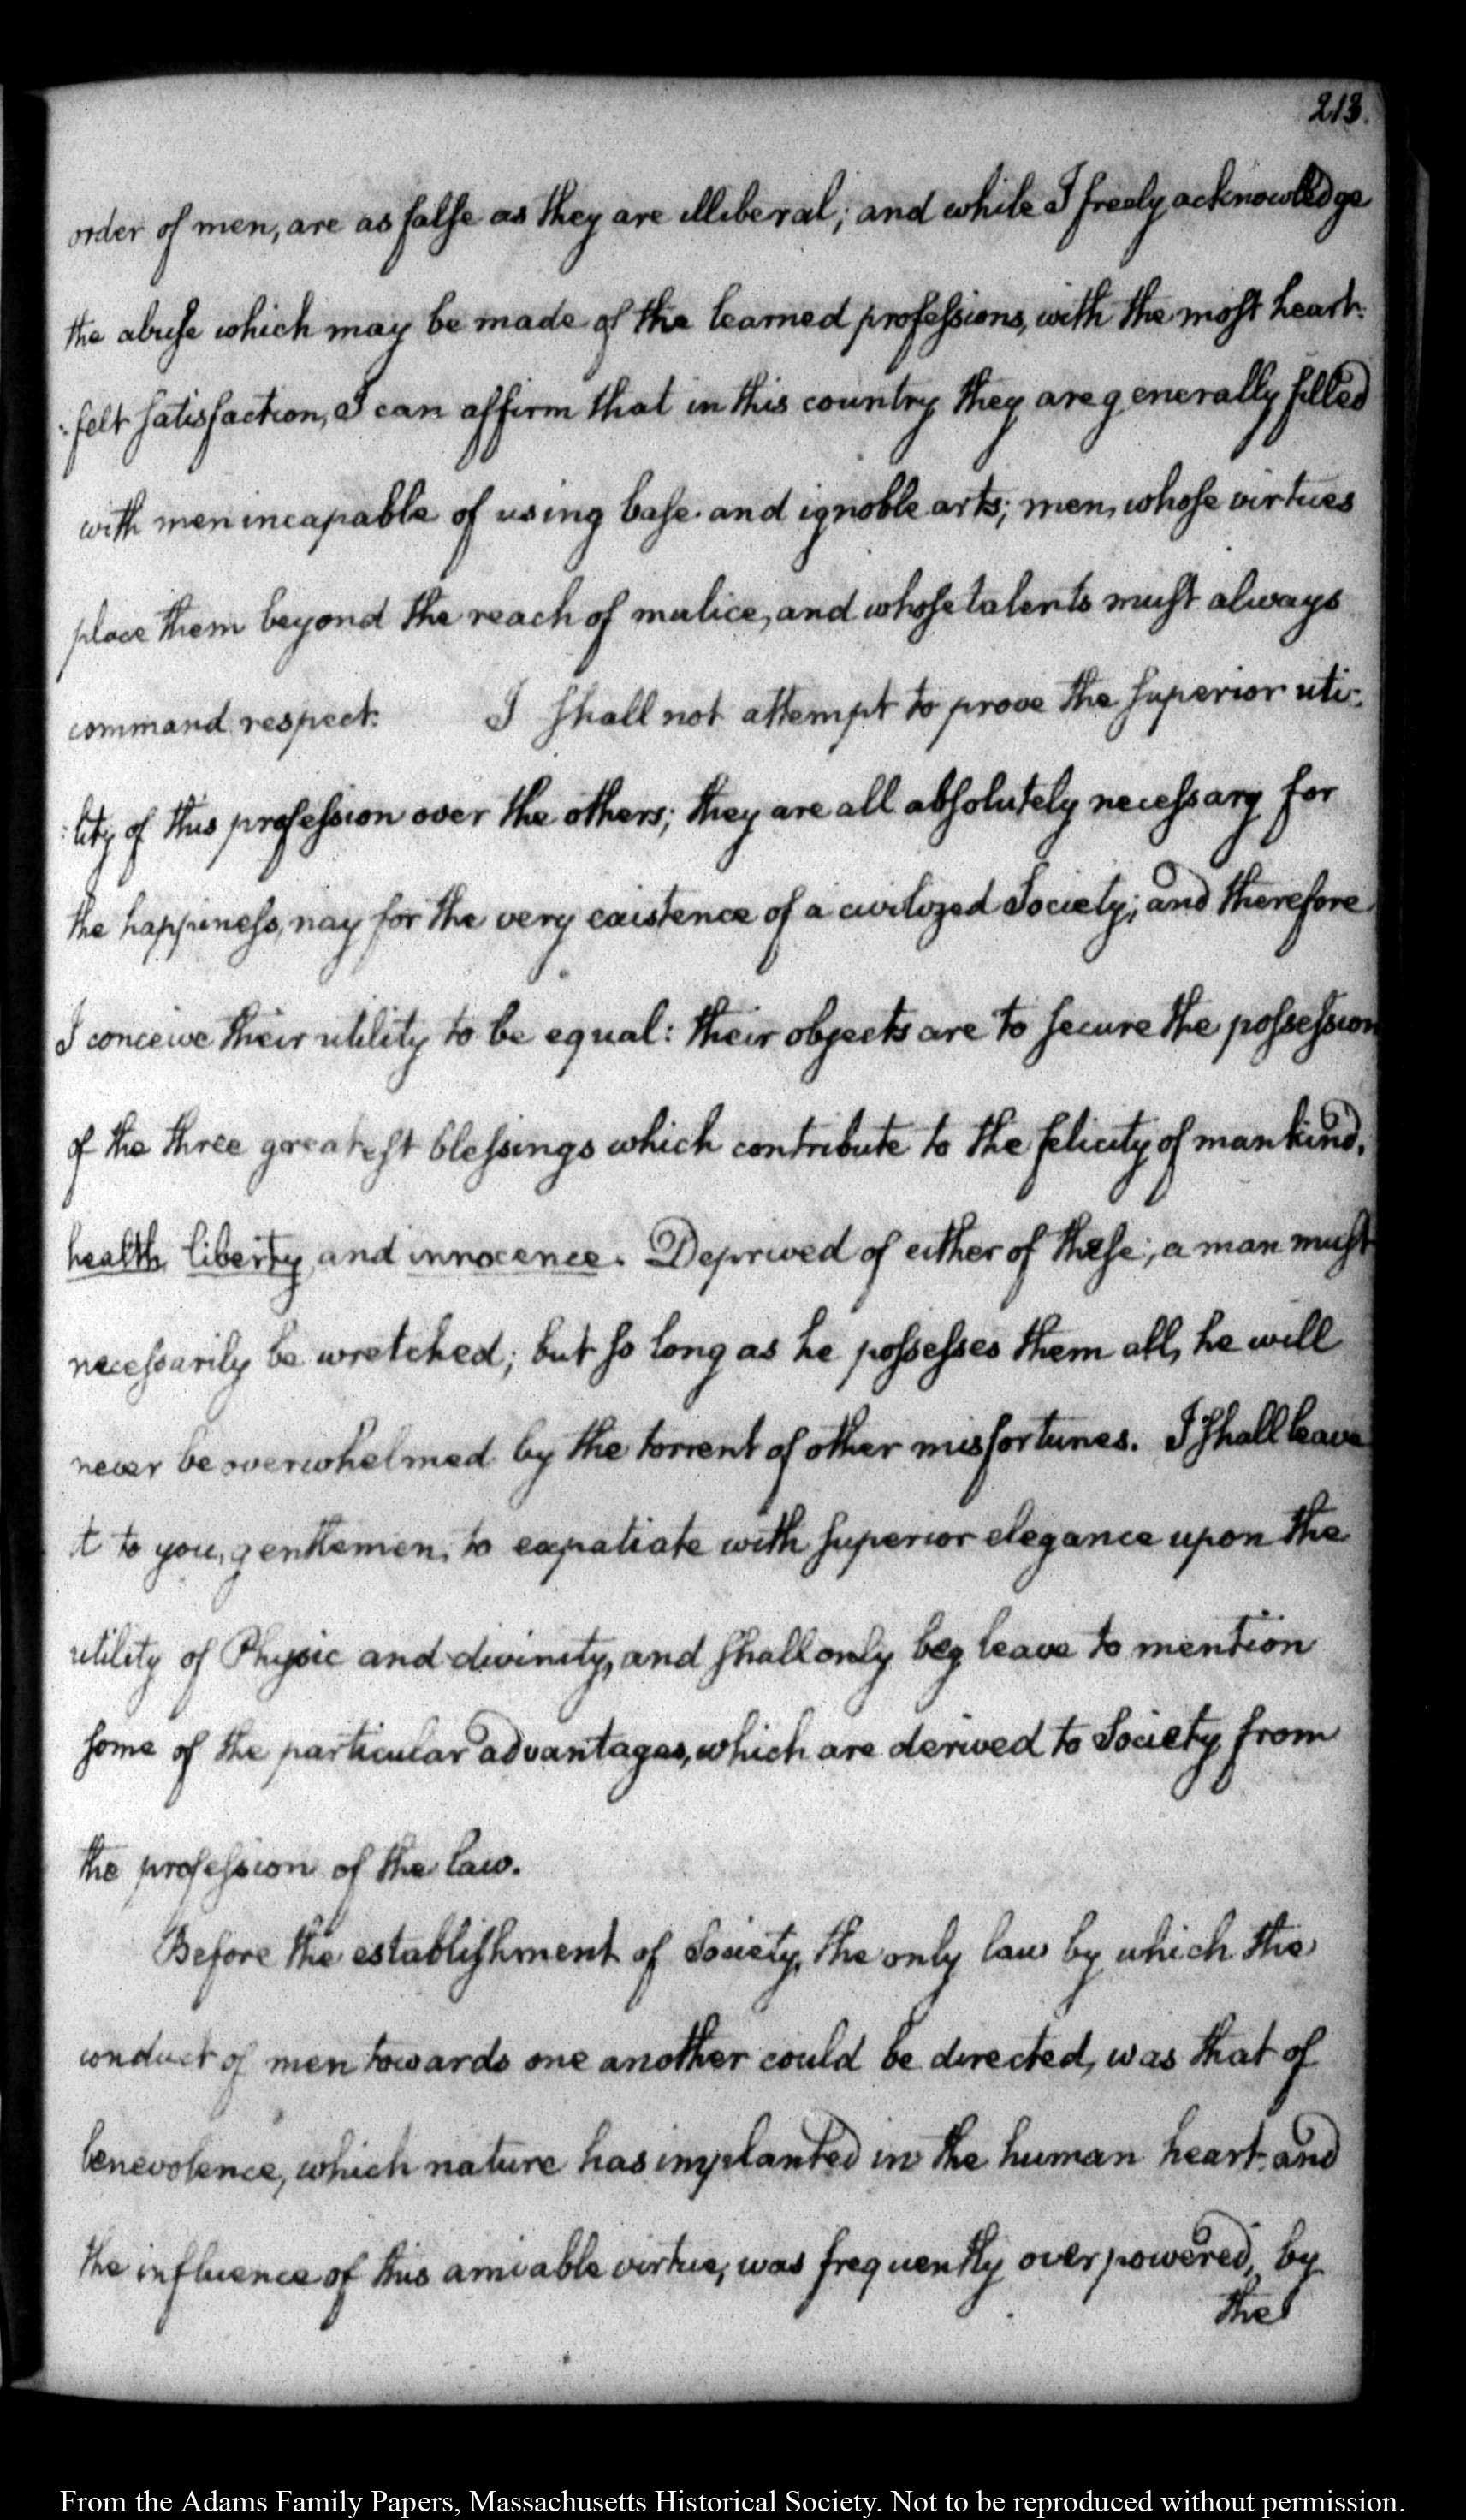 213.
order of men, are as false as they are illiberal; and while I freely acknowledge
the abuse which may be made of the learned professions, with the most heart:
:felt satisfaction, I can affirm that in this country they are generally filled
with men incapable of using base and ignoble arts; men, whose virtues
place them beyond the reach of malice, and whose talents must always
command respect. I shall not attempt to prove the superior uti:
:lity of this profession over the others; they are all absolutely necessary for
the happiness, nay for the very existence of a civilized Society; and therefore
I conceive their utility to be equal: their objects are to secure the possession
of the three greatest blessings which contribute to the felicity of mankind.
health, liberty, and innocence. Deprived of either of these; a man must
necessarily be wretched; but so long as he possesses them all, he will
never be overwhelmed by the torrent of other misfortunes. I shall leave
it to you, gentlemen, to expatiate with superior elegance upon the
utility of Physic and divinity, and shall only beg leave to mention
some of the particular advantages, which are derived to Society from
the profession of the law.
Before the establishment of Society, the only law by which the
conduct of men towards one another could be directed, was that of
benevolence, which nature has implanted in the human heart, and
the influence of this amiable virtue, was frequently overpowered, by
the
From the Adams Family Papers, Massachusetts Historical Society. Not to be reproduced without permission.